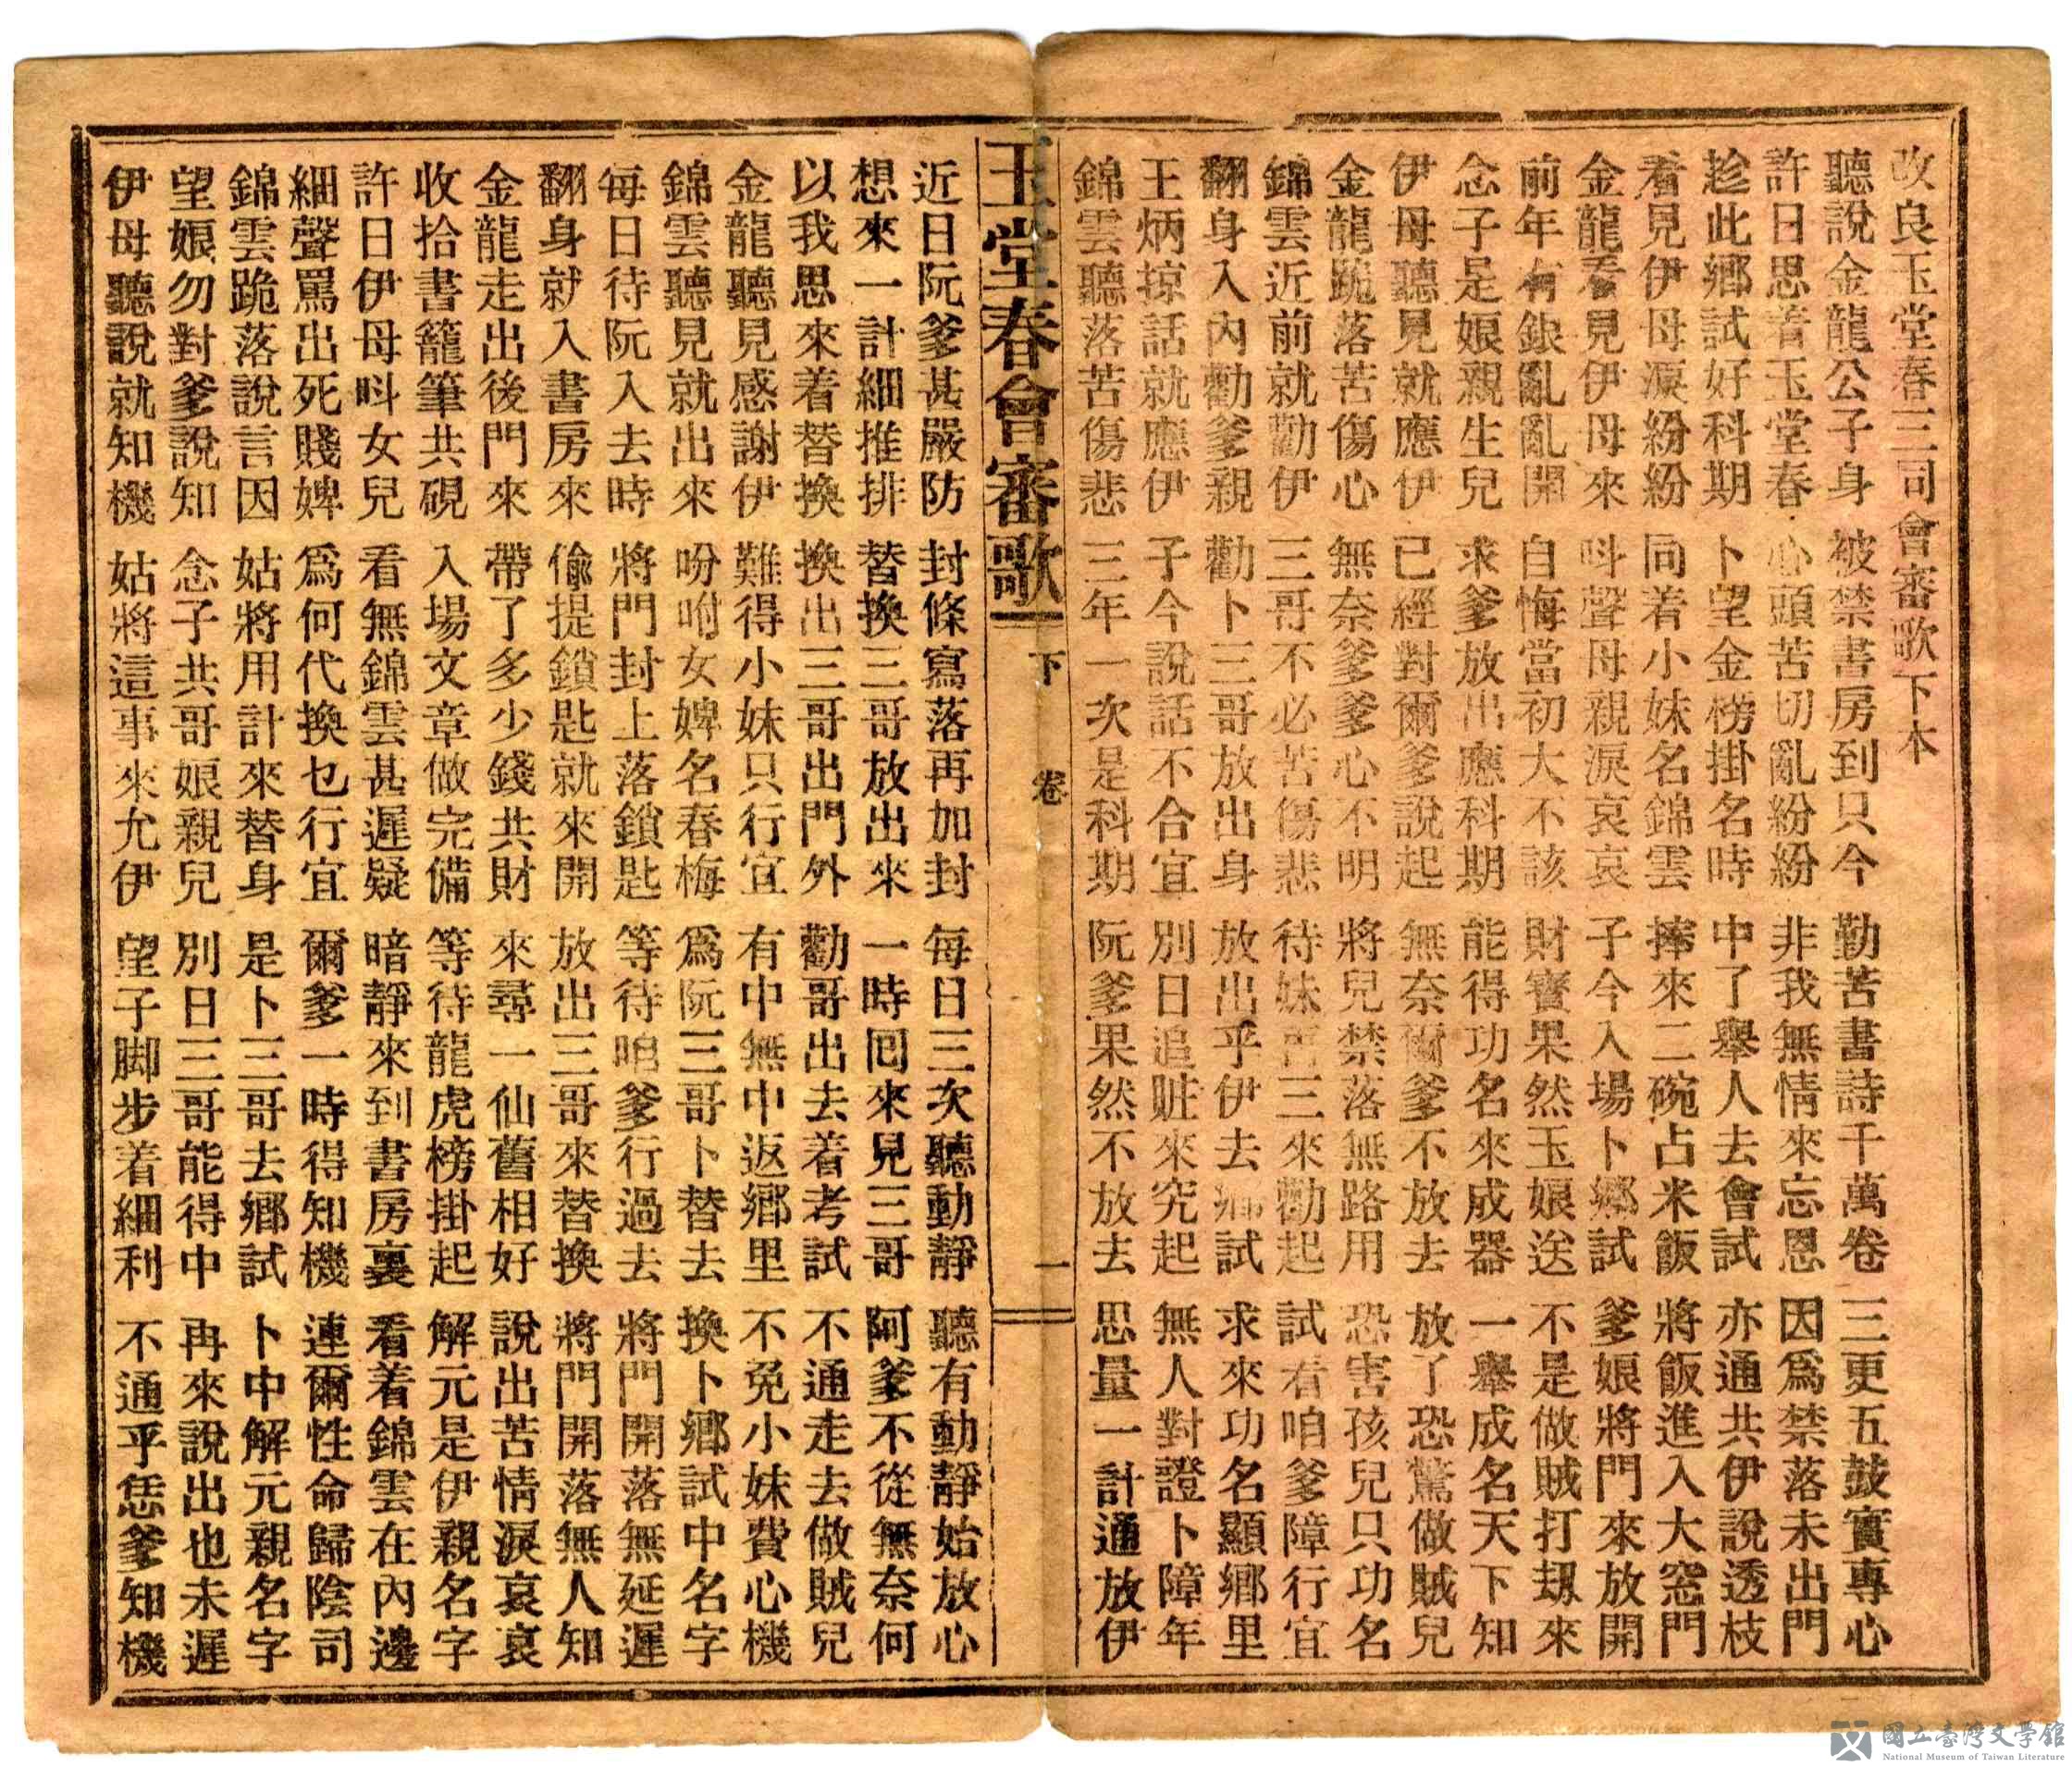 改良玉堂春三司會審歌下本
聽說金龍公子身 被禁書房到只今 勤苦書詩千萬卷 三更五鼓實專心
許日思着玉堂春 心頭苦切亂紛紛 非我無情來忘恩 因爲禁落未出門
趁此鄉試好科期 卜望金榜掛名時 中了舉人去會試 亦通共伊說透枝
看見伊母淚紛紛 同着小妹名錦雲 捧來二碗占米飯 將飯進入大窓門
金龍看見伊母來 呌聲母親淚哀哀 子今入場卜鄉試 爹娘將門來放開
前年有銀亂亂開 自悔當初大不該 財寶果然玉娘送 不是做賊打刼來
念子是娘親生兒 求爹放出應科期 能得功名來成器 一舉成名天下知
伊母聽見就應伊 已經對爾爹說起 無奈爾爹不放去 放了恐驚做賊兒
金龍跪落苦傷心 無奈爹爹心不明 將兒禁落無路用 恐害孩兒只功名
錦雲近前就勸伊 三哥不必苦傷悲 待妹再三來勸起 試看咱爹障行宜
翻身入內勸爹親 勸卜三哥放出身 放出乎伊去鄉試 求來功名顯鄉里
王炳掠話就應伊 子今說話不合宜 別日追賍來究起 無人對證卜障年
錦雲聽落苦傷悲 三年一次是科期 阮爹果然不放去 思量一計通放伊
玉堂春會審歌 下 卷 一
近日阮爹甚嚴防 封條寫落再加封 每日三次聽動靜 聽有動靜始放心
想來一計細推排 替換三哥放出來 一時囘來見三哥 阿爹不從無奈何
以我思來着替換 換出三哥出門外 勸哥出去着考試 不通走去做賊兒
金龍聽見感謝伊 難得小妹只行宜 有中無中返鄉里 不免小妹費心機
錦雲聽見就出來 吩咐女婢名春梅 爲阮三哥卜替去 換卜鄉試中名字
每日待阮入去時 將門封上落鎖匙 等待咱爹行過去 將門開落無延遲
翻身就入書房來 偸提鎖匙就來開 放出三哥來替換 將門開落無人知
金龍走出後門來 帶了多少錢共財 來尋一仙舊相好 說出苦情淚哀哀
收拾書籠筆共硯 入場文章做完備 等待龍虎榜掛起 解元是伊親名字
許日伊母呌女兒 看無錦雲甚遲疑 暗靜來到書房裏 看着錦雲在內邊
細聲罵出死賤婢 爲何代換乜行宜 爾爹一時得知機 連爾性命歸陰司
錦雲跪落說言因 姑將用計來替身 是卜三哥去鄉試 卜中解元親名字
望娘勿對爹說知 念子共哥娘親兒 別日三哥能得中 再來說出也未遲
伊母聽說就知機 姑將這事來允伊 望子脚步着細利 不通乎恁爹知機
國立臺灣文學館
National Museum of Taiwan Literature